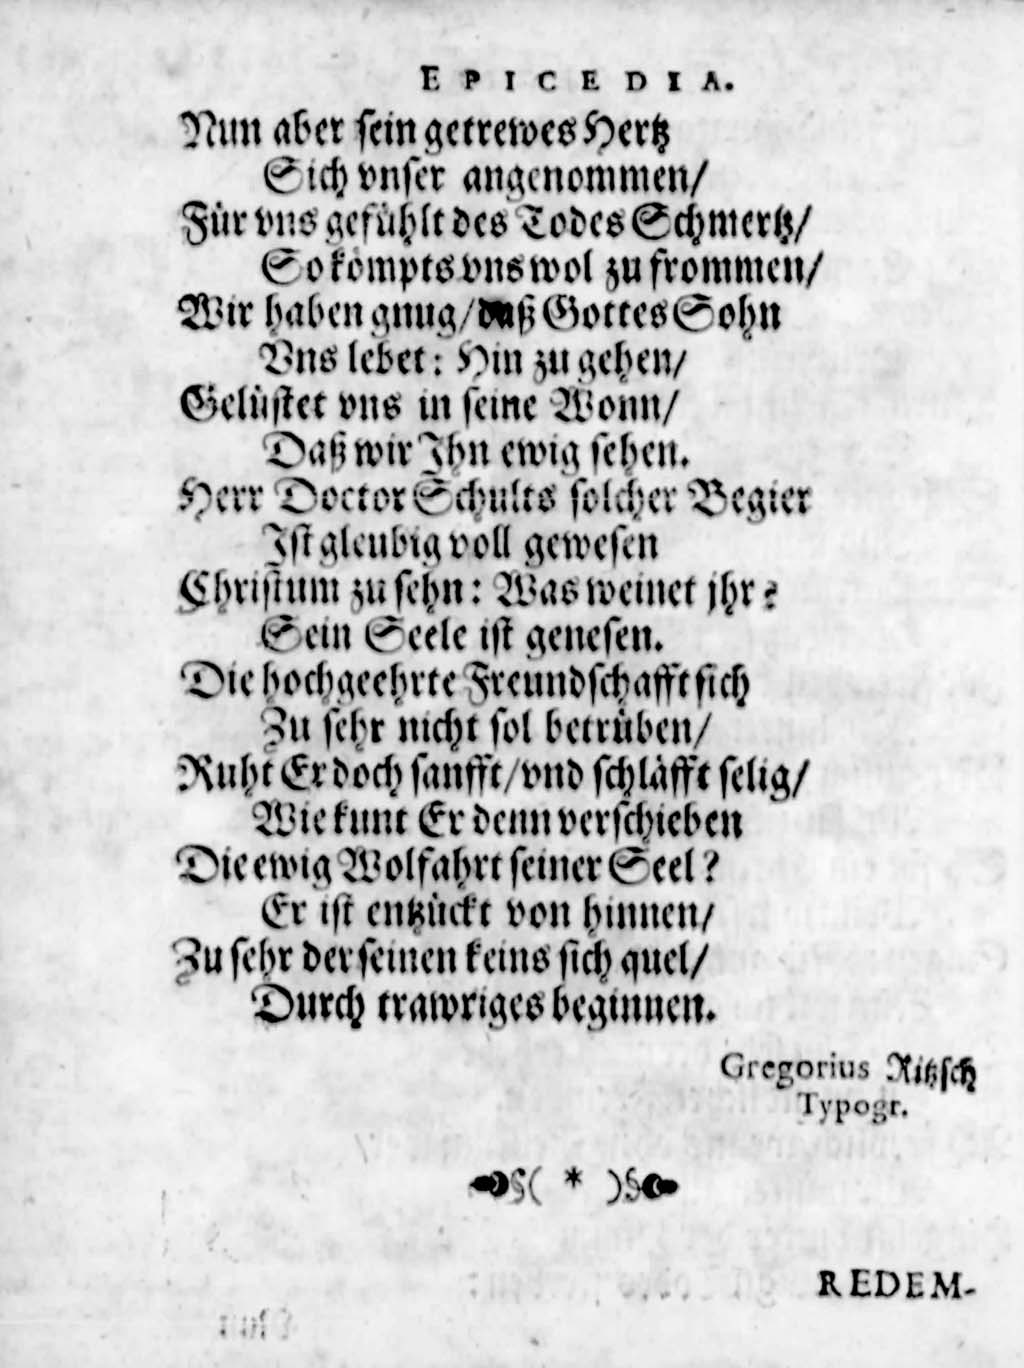 EPICEDIA.
Nun aber sein getrewes Hertz
Sich vnser angenommen/
Für vns gefühlt des Todes Schmertz/
So kömpts vns wol zu frommen/
Wir haben gnug/ daß Gottes Sohn
Vns lebet: Hin zu gehen/
Gelüstet vns in seine Wonn/
Daß wir Jhn ewig sehen.
Herr Doctor Schults solcher Begier
Jst gleubig voll gewesen
Christum zu sehn: Was weinet jhr?
Sein Seele ist genesen.
Die hochgeehrte Freundschafft sich
Zu sehr nicht sol betrüben/
Ruht Er doch sanfft/ vnd schläfft selig/
Wie kunt Er denn verschieben
Die ewig Wolfahrt seiner Seel?
Er ist entzückt von hinnen/
Zu sehr der seinen keins sich quel/
Durch trawriges beginnen.
Gregorius Ritzsch
Typogr.
§( * )§
REDEM-